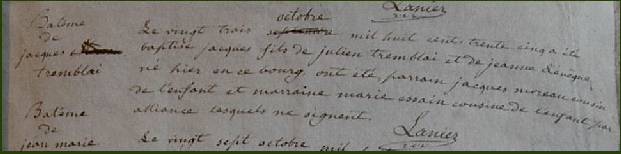 Lanier
Batême
de
jacques
tremblai
octobre
Le vingt trois septembre mil huit cent trente cinq a été
baptisé jacques fils de julien tremblai et de jeanne Levêque
né hier en ce bourg, ont été parrain jacques moreau cousin
de l'enfant et marraine marie essain cousine de l'enfant par
alliance lesquels ne signent.
Lanier
Batême
de
jean marie
Le vingt sept octobre mil